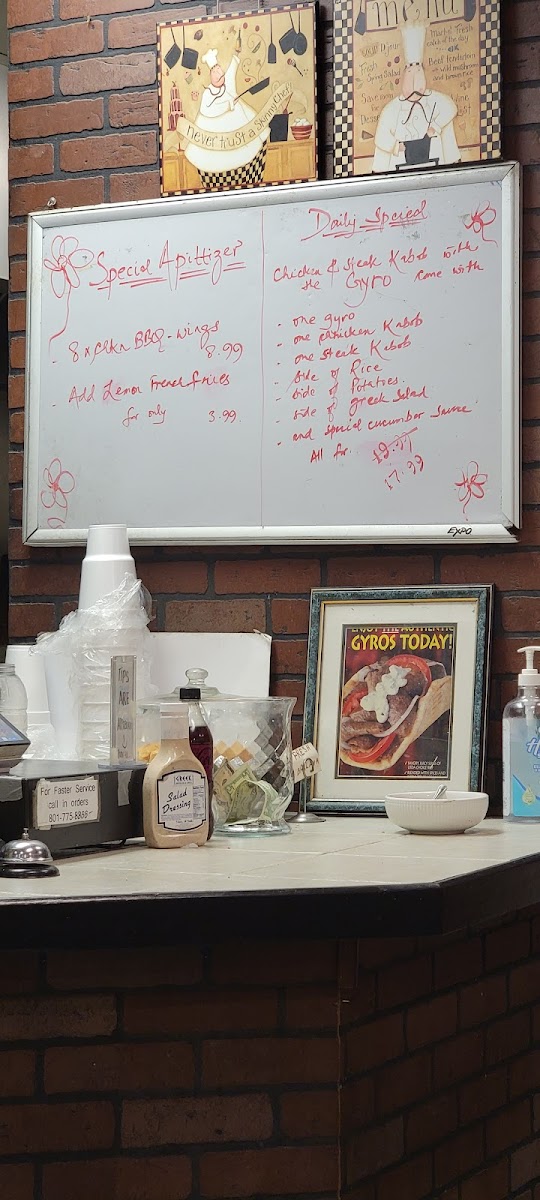 never trust a skinny chef!
menu
Special Apittizer
- 8 x chkn BBQ - wings
8.99
- Add Lemon French fries
for only 3.99.
Daily Speciel
Chicken & Steak Kabob with
the Gyro come with
- one gyro
- one chicken Kabob
- one steak Kabob
- Side of Rice
- Side of Potatoes.
- side of greek Salad
- and special cucumber sauce
All for. 19.99
17.99
EXPO
ENJOY THE AUTHENTIC
GYROS TODAY!
TIPS
ARE
For Faster Service
call in orders
801-775-8866
Salad
Dressing